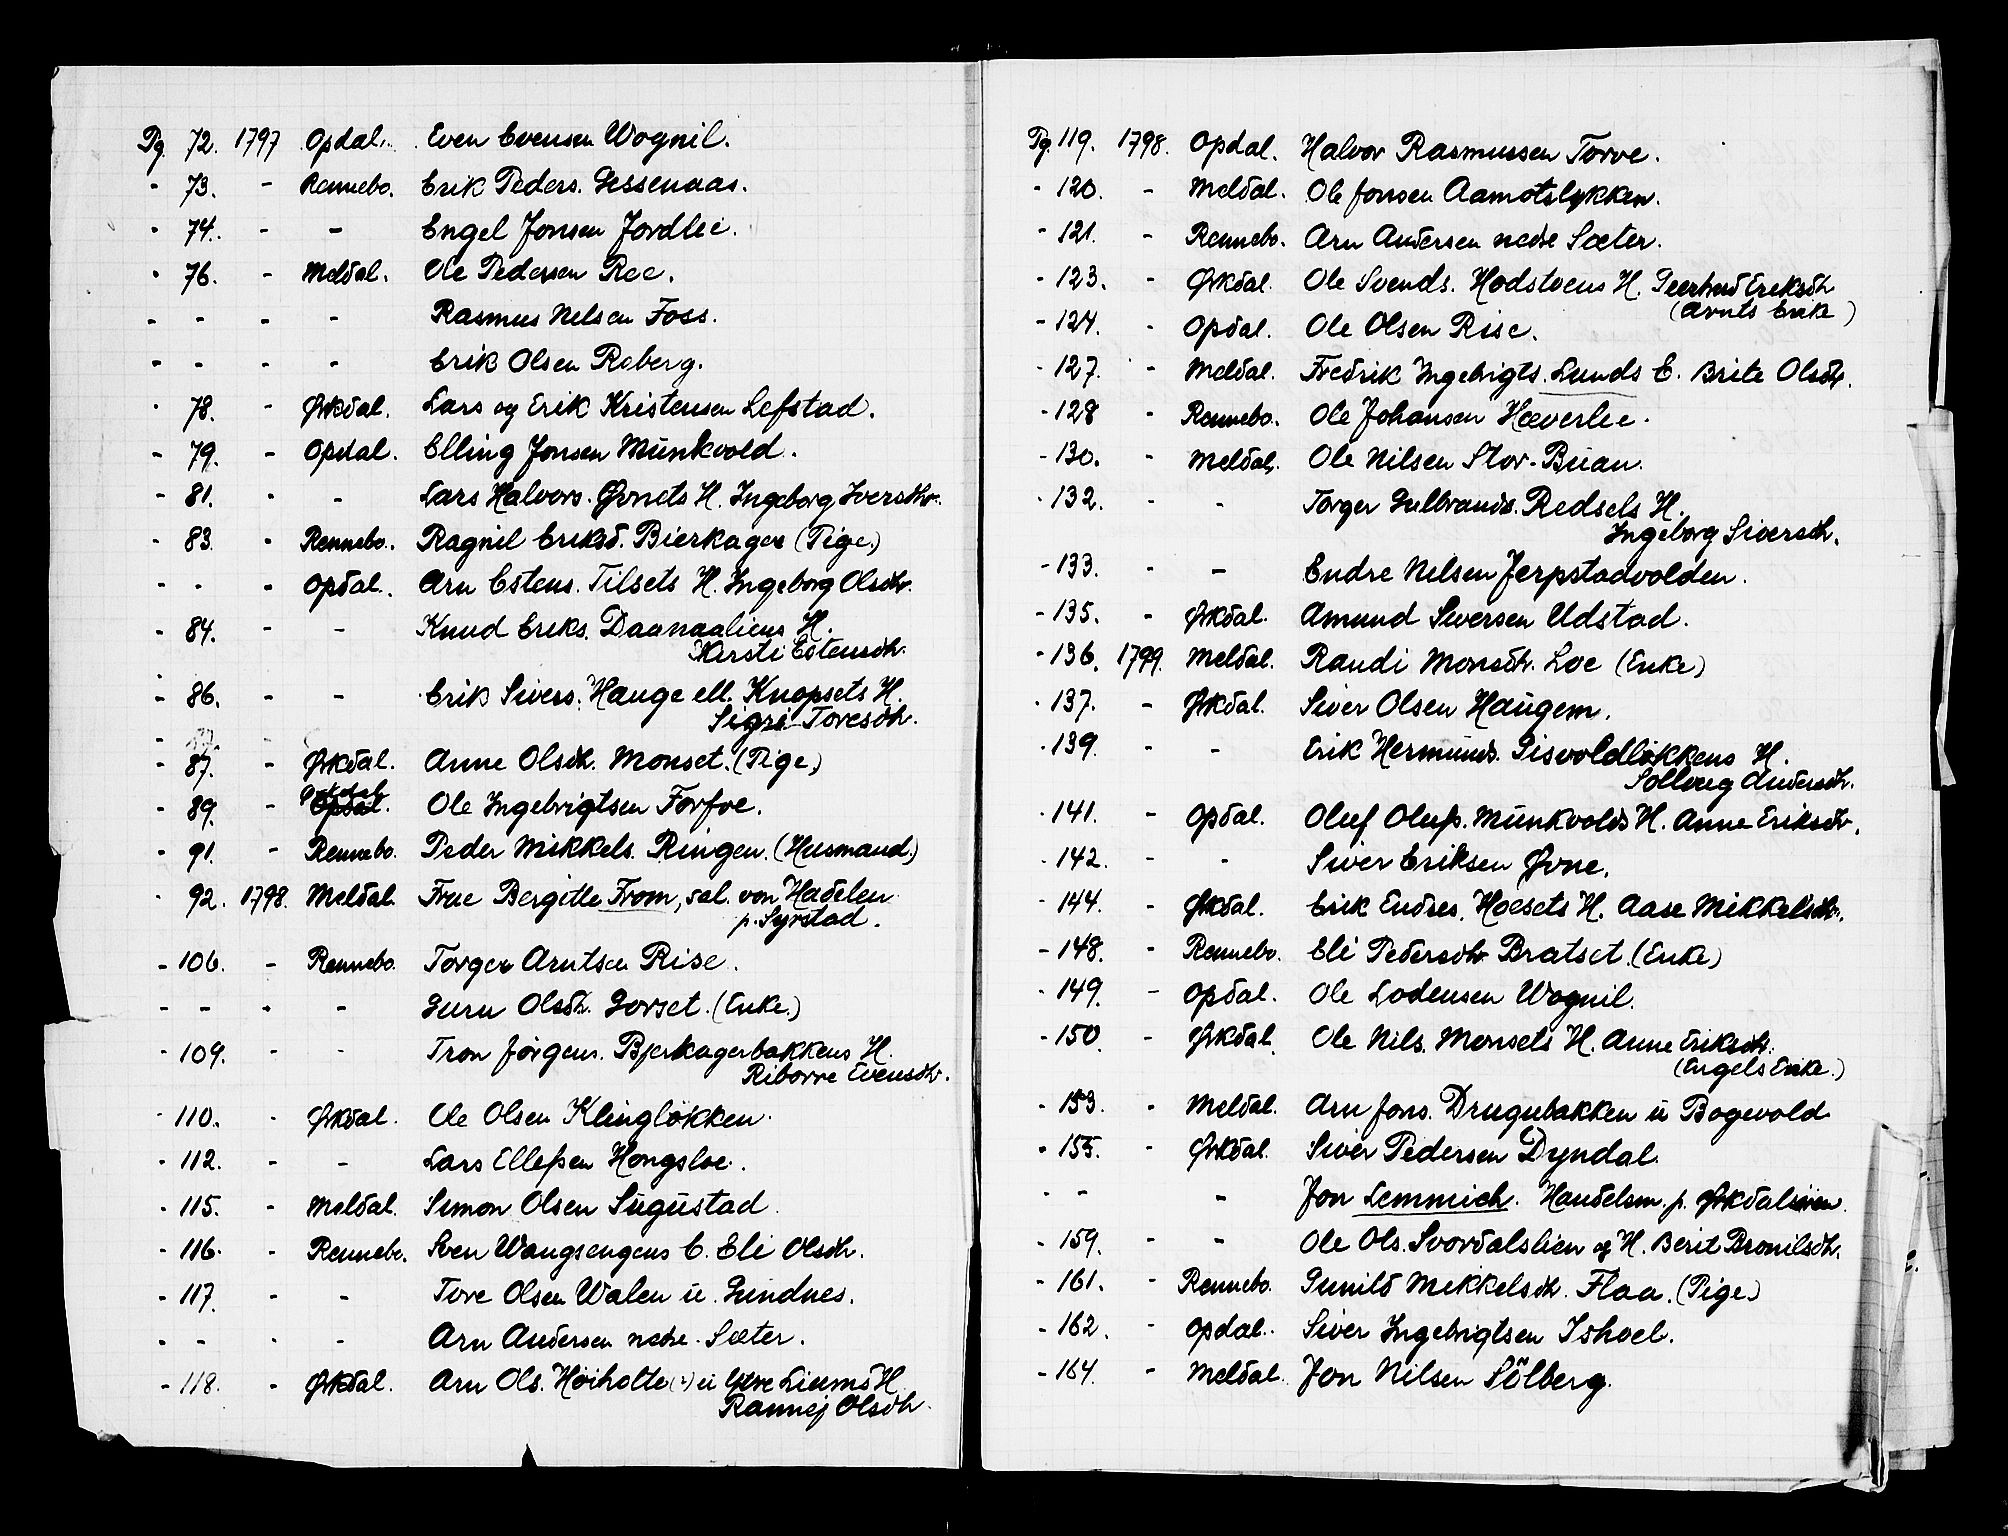 Pg. 72. 1797 Opdal. Even Evensen Wognil.
- 73. - Rennebo. Erik Peders. Gessenaas.
- 74. - - Engel Jonsen Jordlie.
- 76. - Meldal. Ole Pedersen Ree.
- - - - Rasmus Nelsen Foss.
- - - - Erik Olsen Roberg.
- 78. - Ørkdal. Lars og Erik Kristensen Lefstad.
- 79. - Opdal. Elling Jonsen Munkvold.
- 81. - - Lars Halvors. Ørnets H. Ingeborg Iversdtr.
- 83. - Rennebo. Ragnil Eriksd. Bierkager (Pige.)
- - - Opdal. Arn Estens. Tilsets H. Ingeborg Olsdtr.
- 84. - - Knud Eriks. Daanaaliens H.
Kirsti Estensdtr.
- 86. - - Erik Sivers. Hauge ell. Knopsets H.
Sigri Toresdtr.
- 87. - Ørkdal. Anne Olsdtr. Monset. (Pige)
- 89. - Ørkdal Ole Ingebrigtsen Forfoe.
- 91. - Rennebo. Peder Mikkels. Ringen. (Husmand.)
- 92. 1798. Meldal. Frue Bergitte From, sal. von Hadelen
p. Syrstad.
- 106. - Rennebo. Torger Arntsen Rise.
- - - - Guru Olsdtr. Gorset. (Enke.)
- 109. - - Tron Jørgens. Bjerkagerbakkens H.
Riborre Evensdtr.
- 110. - Ørkdal. Ole Olsen Klingløkken.
- 112. - - Lars Ellefsen Hongsloe.
- 115. - Meldal. Simon Olsen Sugustad.
- 116. - Rennebo. Sven Wangsengens E. Eli Olsdtr.
- 117. - - Tore Olsen Walen u. Gundnes.
- - - - Arn Andersen nedre Sæter.
- 118. - Ørkdal. Arn Ols. Høiholte (?) u. Ydre Liums H.
Rannej Olsdtr.
Pg. 119. 1798. Opdal. Halvor Rasmussen Torve.
- 120. - Meldal. Ole Jonsen Aamotslykken.
- 121. - Rennebo. Arn Andersen nedre Sæter.
- 123. - Ørkdal. Ole Svends. Hodstoens H. Eriksdtr
(Arnts Enke)
- 124. - Opdal. Ole Olsen Rise.
- 127. - Meldal. Fredrik Ingebrigts. Lunds E. Brite Olsdtr.
- 128 - Rennebo. Ole Johansen Hæverlie.
- 130. - Meldal. Ole Nilsen Stor-Buan.
- 132. - - Torger Gulbrands. Redsels H.
Ingeborg Siversdtr.
- 133. - - Endre Nelsen Jerpstadvolden.
- 135. - Ørkdal. Amund Siversen Udstad.
- 136. 1799. Meldal. Randi Monsdtr. Loe (Enke)
- 137. - Ørkdal. Siver Olsen Haugem.
- 139. - - Erik Hermunds. Gisvoldløkkens H.
Solloug Andersdtr.
- 141. - Opdal. Oluf Olufs. Munkvolds H. Anne Eriksdtr.
- 142. - - Siver Eriksen Øvne.
- 144. - Ørkdal. Erik Endres. Hoesets H. Aase Mikkelsdtr.
- 148. - Rennebo. Eli Pedersdtr Bratset. (Enke)
- 149. - Opdal. Ole Lodensen Wognil.
- 150. - Ørkdal. Ole Nils. Monsets H. Anne Eriksdtr.
(Engels Enke.)
- 153. - Meldal. Arn Jons. Drugubakken u Bogevold
- 155. - Ørkdal. Siver Pedersen Dyndal.
- - - Jon Lemmich. Handelsm. p. Ørkdalsøren.
- 159. - - Ole Ols. Svordalslien og H. Berit Bronilsdtr.
- 161. - Rennebo. Gunild Mikkelsdtr. Flaa. (Pige)
- 162. - Opdal. Siver Ingebrigtsen Ishoel.
- 164. - Meldal. Jon Nilsen Sölberg.